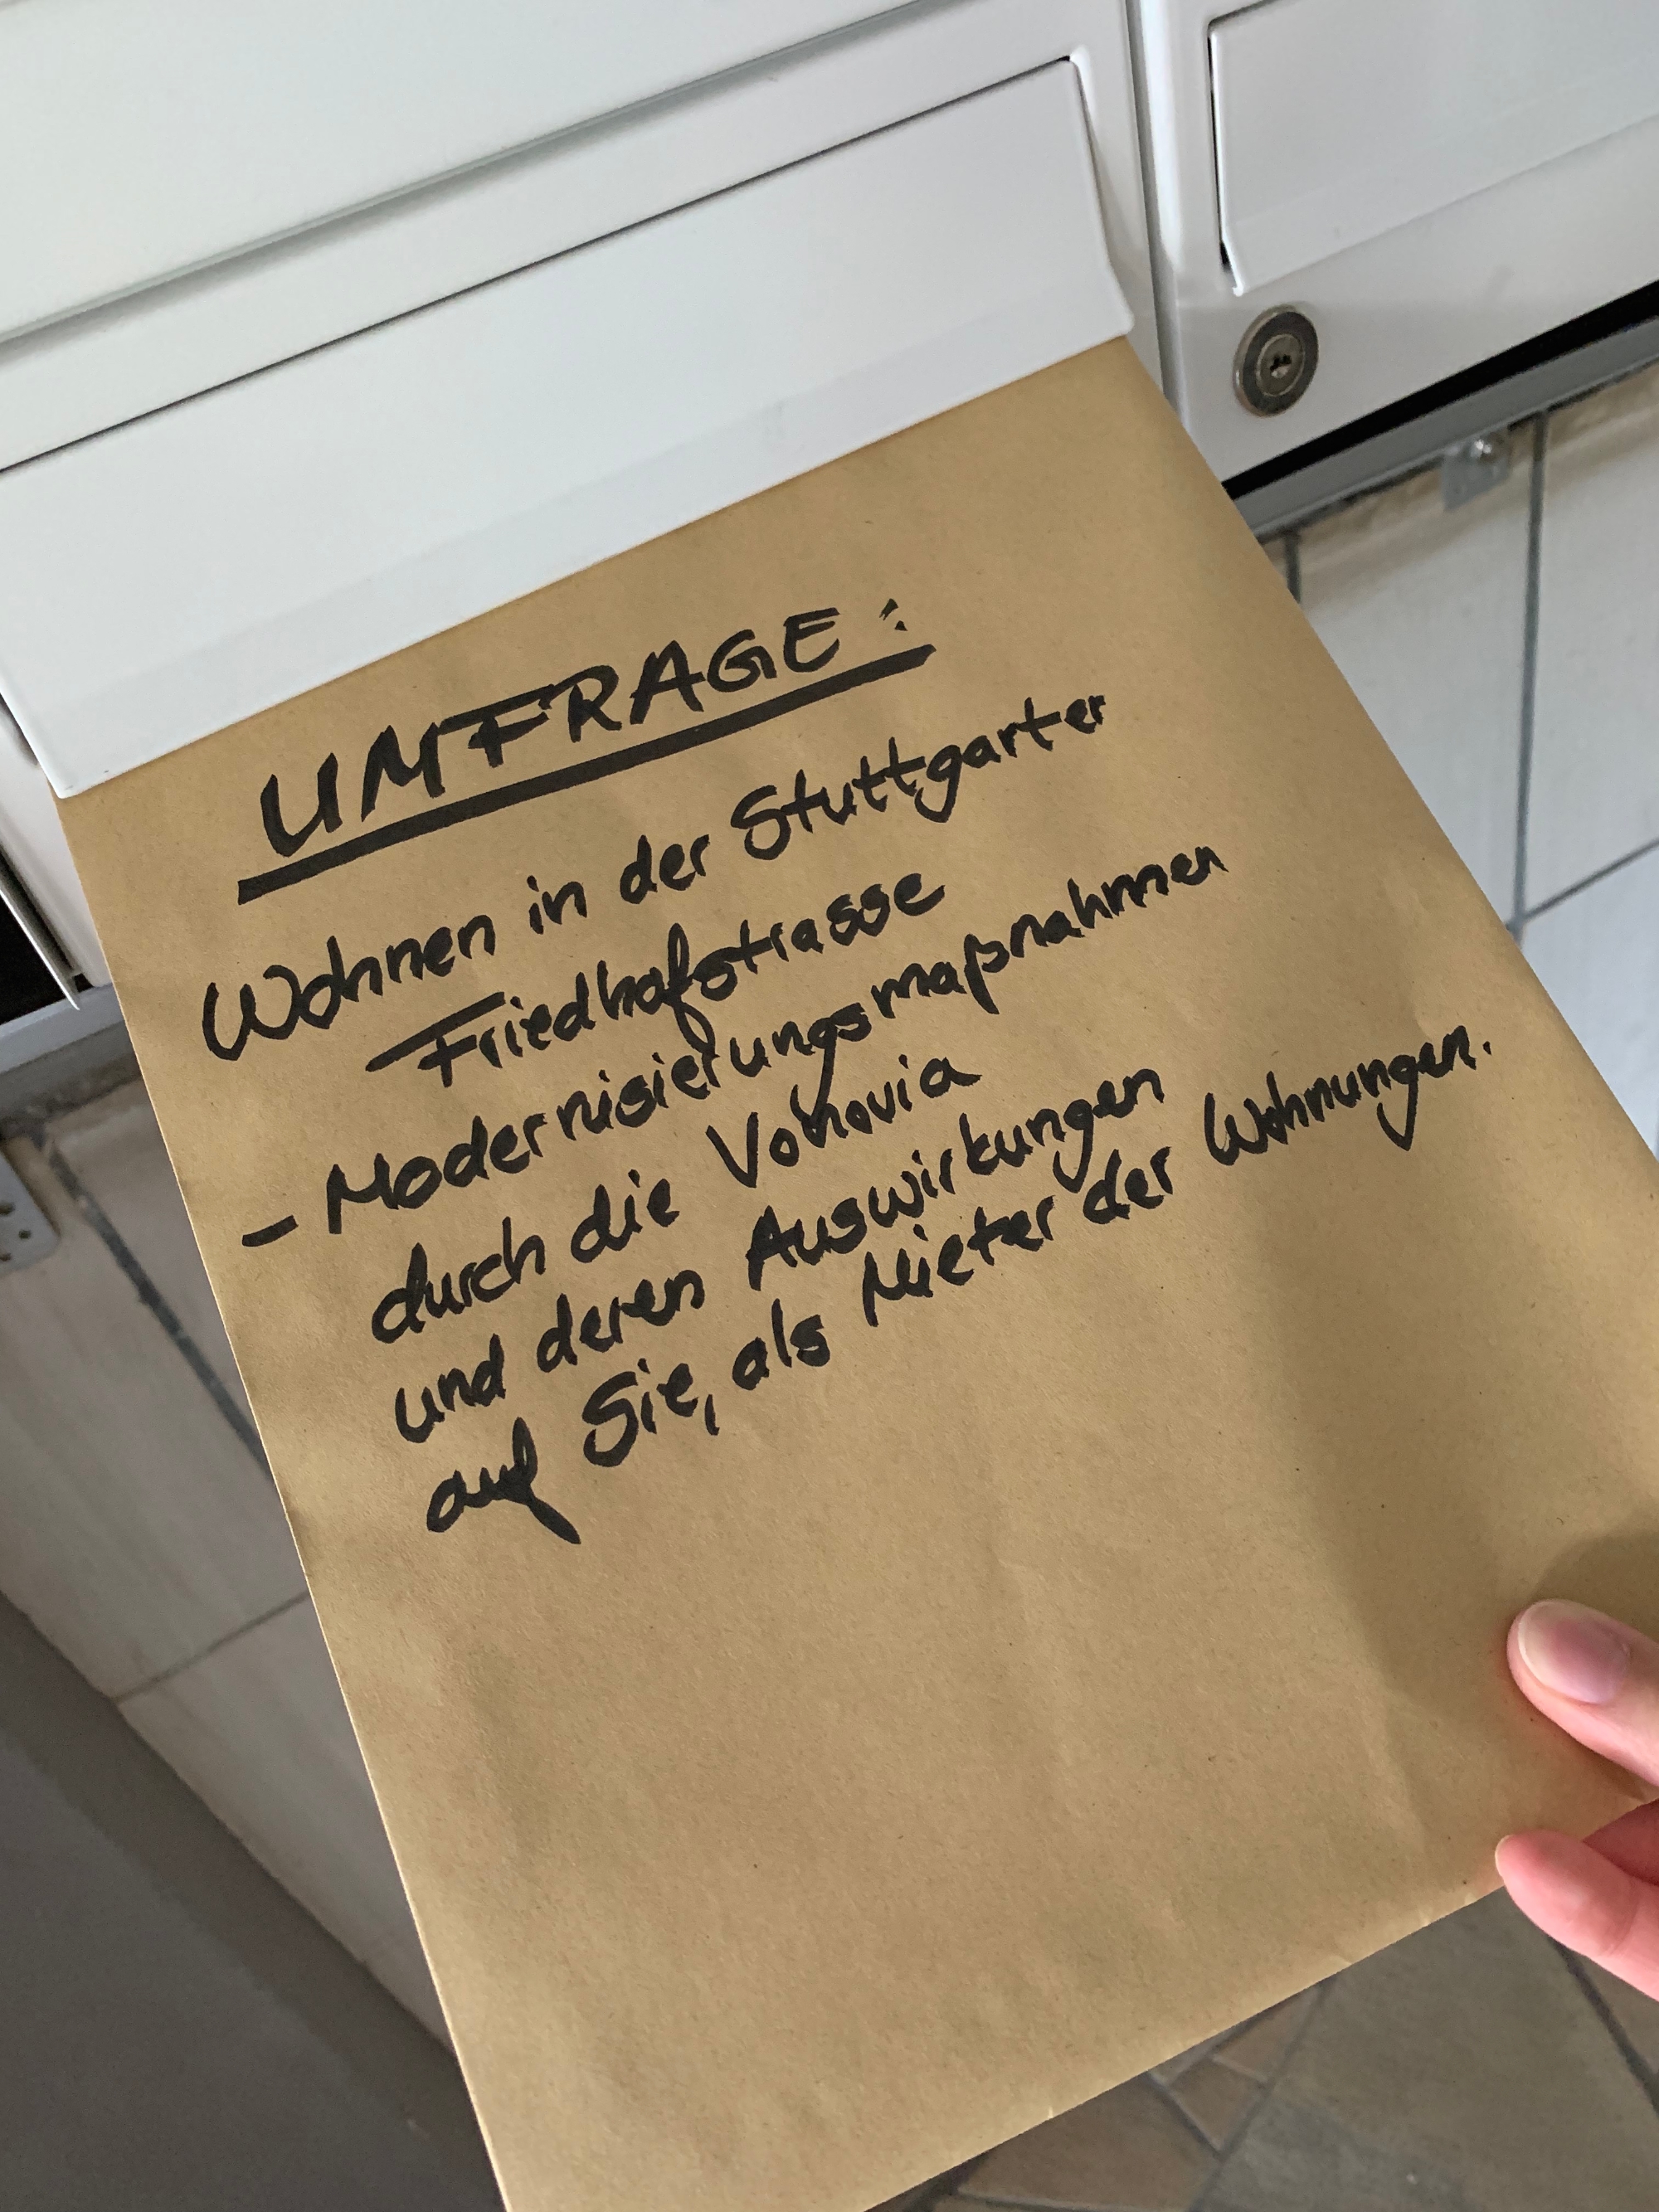 UMFRAGE:
Wohnen in der Stuttgarter
Friedhofstrasse
- Modernisierungsmaßnahmen
durch die Vonovia
und deren Auswirkungen
auf Sie, als Mieter der Wohnungen.